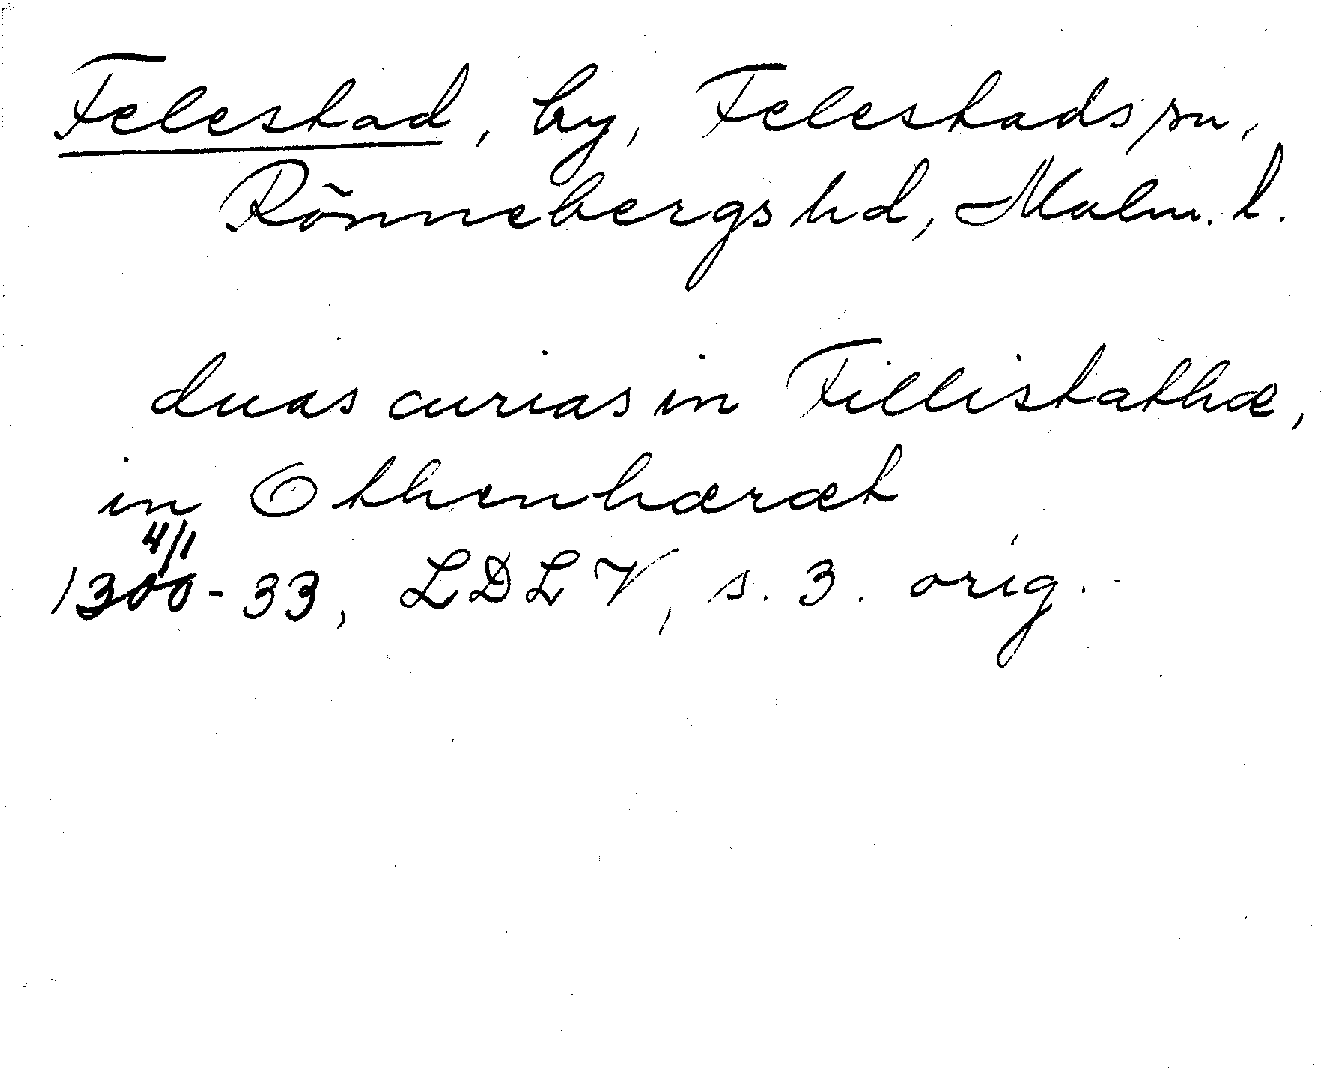 Felestad, by, Felestads sn,
Rönnebergs hd, Malm. l.
duas curias in Fillistathæ,
in Othenhæræt
4/1
1300-33, LDLV, s. 3. orig.